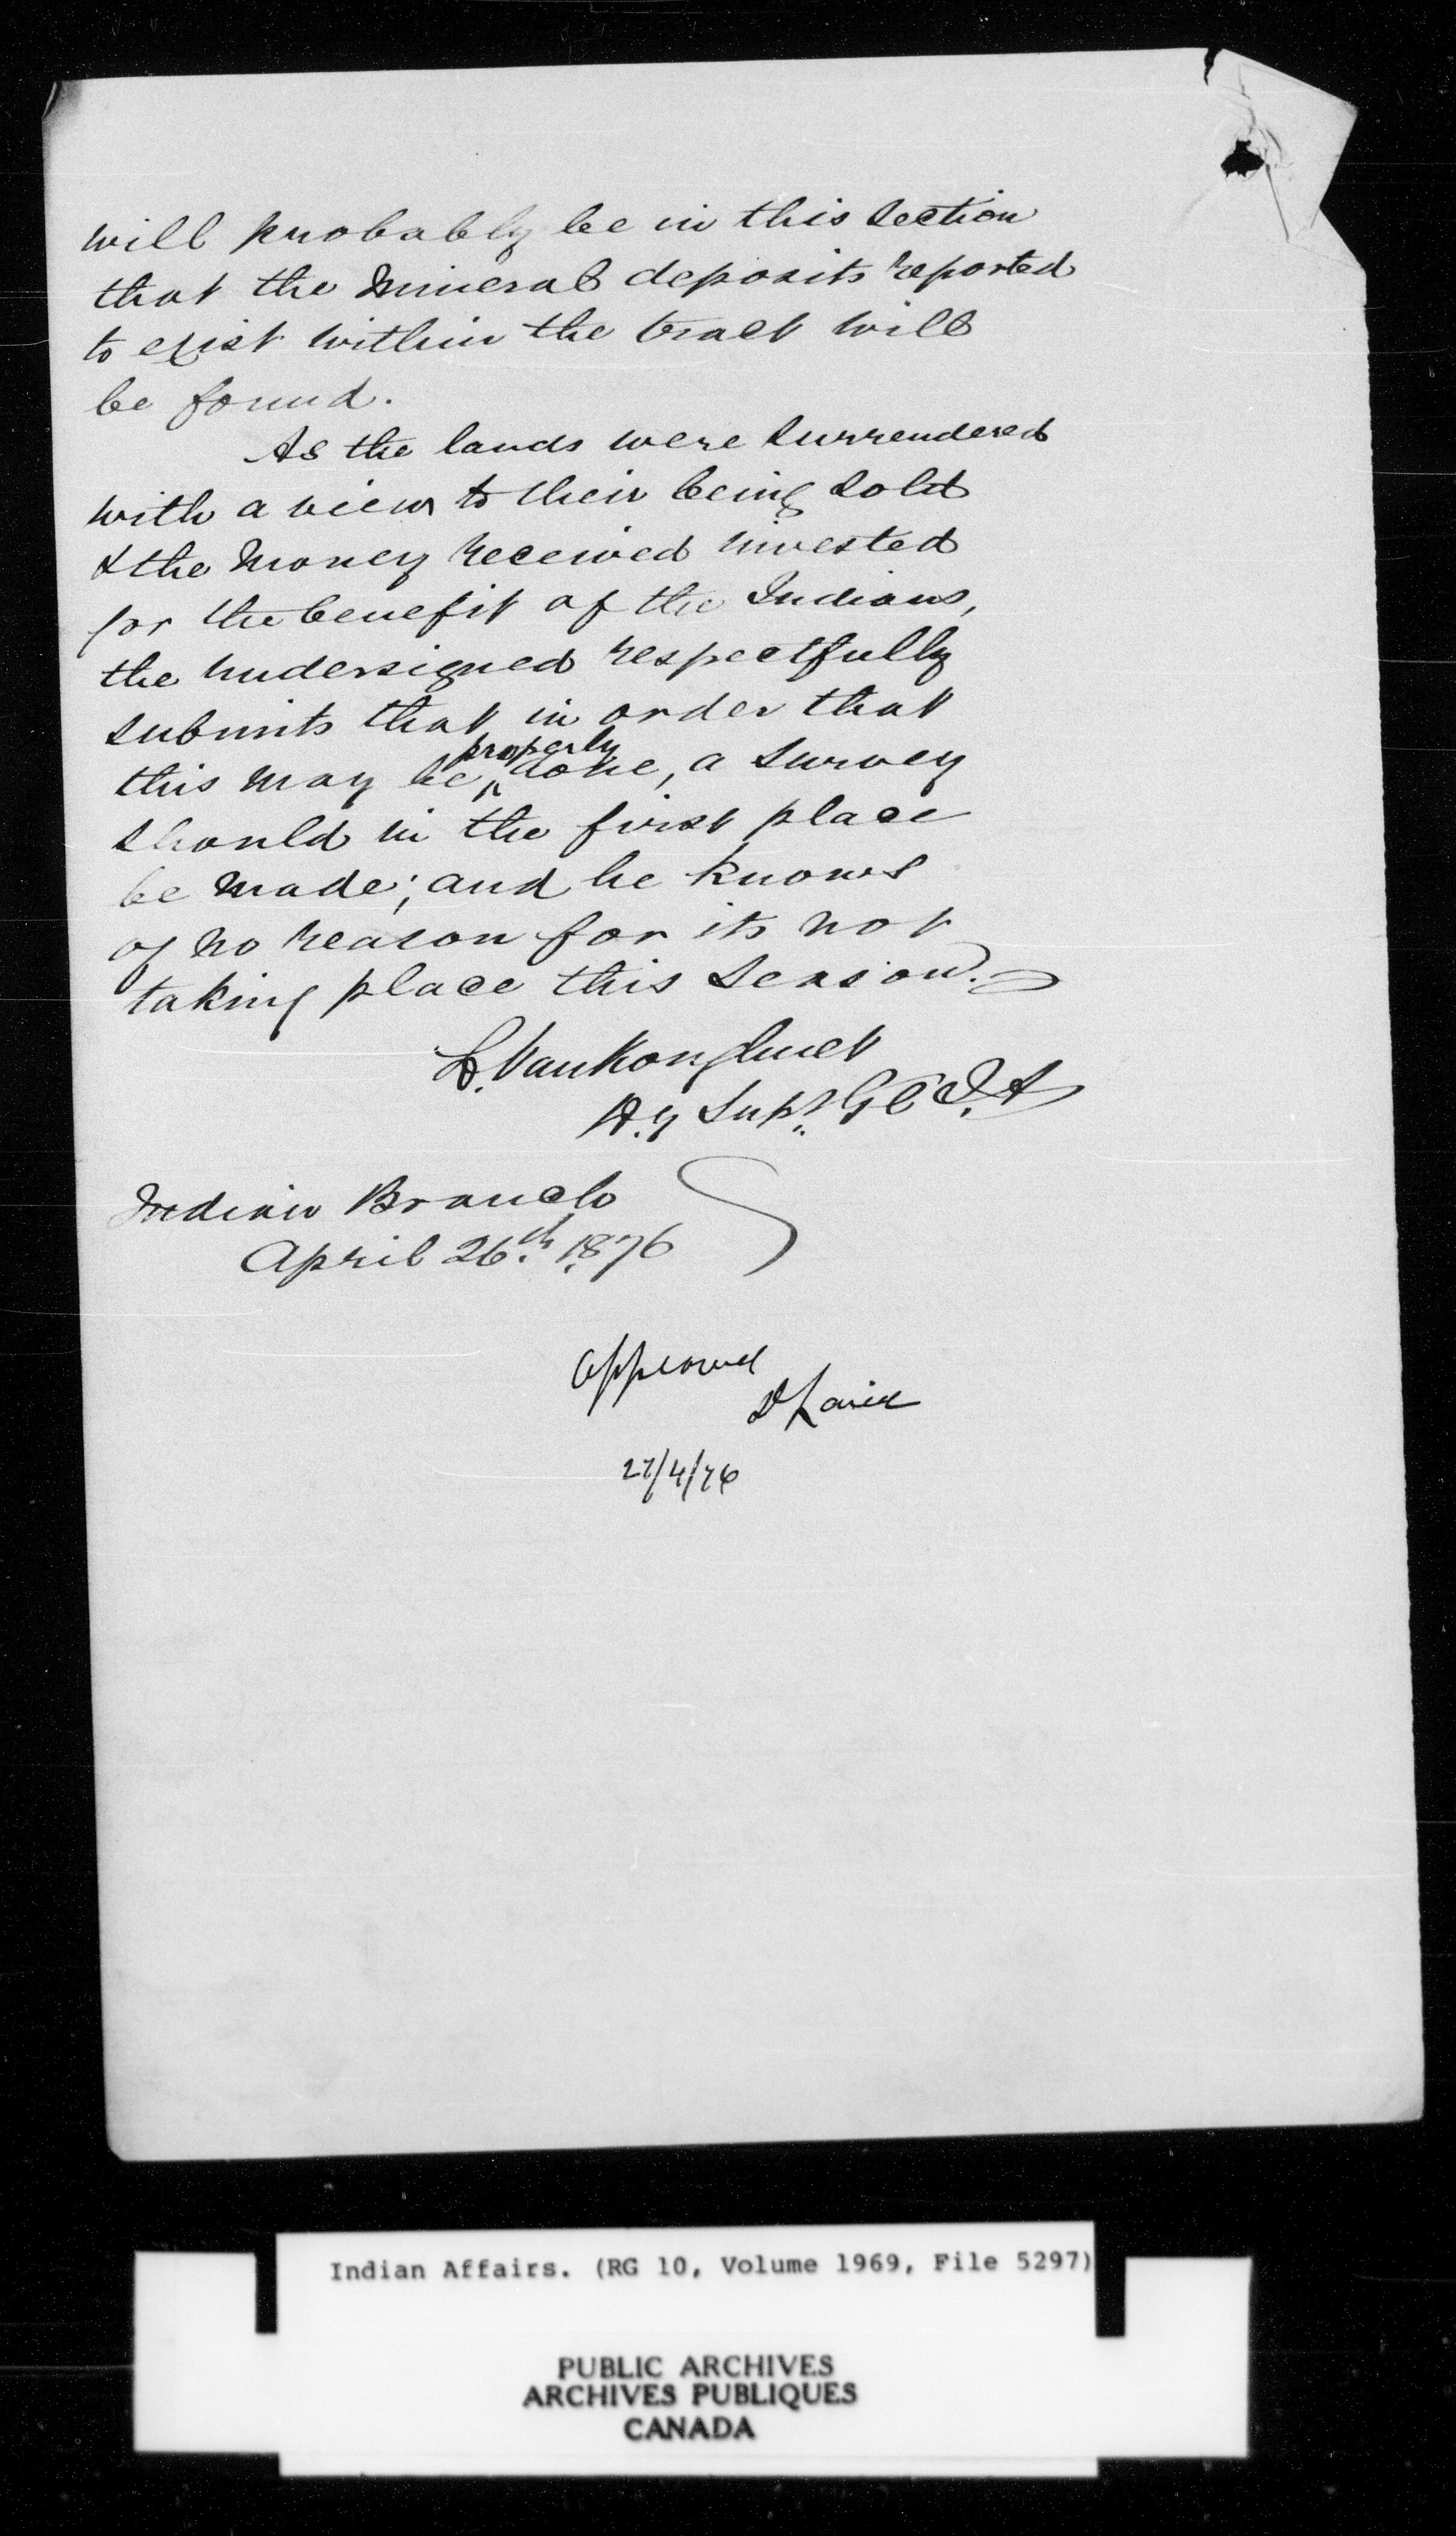 will probably be in this section
that the mineral deposits reported
to exist within the tract will
be found.
As the lands were surrendered
with a view to their being sold
& the money received invested
for the benefit of the Indians,
the undersigned respectfully
submits that in order that
this may be properly done, a survey
should in the first place
be made; and he knows
of no reason for its not
taking place this season.
L. VanKoughnet
Dy Supt. Gl I. A
Indian Branch
April 26th. 1876
Approved
D Laird
27/4/76
Indian Affairs. (RG 10, Volume 1969, File 5297)
PUBLIC ARCHIVES
ARCHIVES PUBLIQUES
CANADA